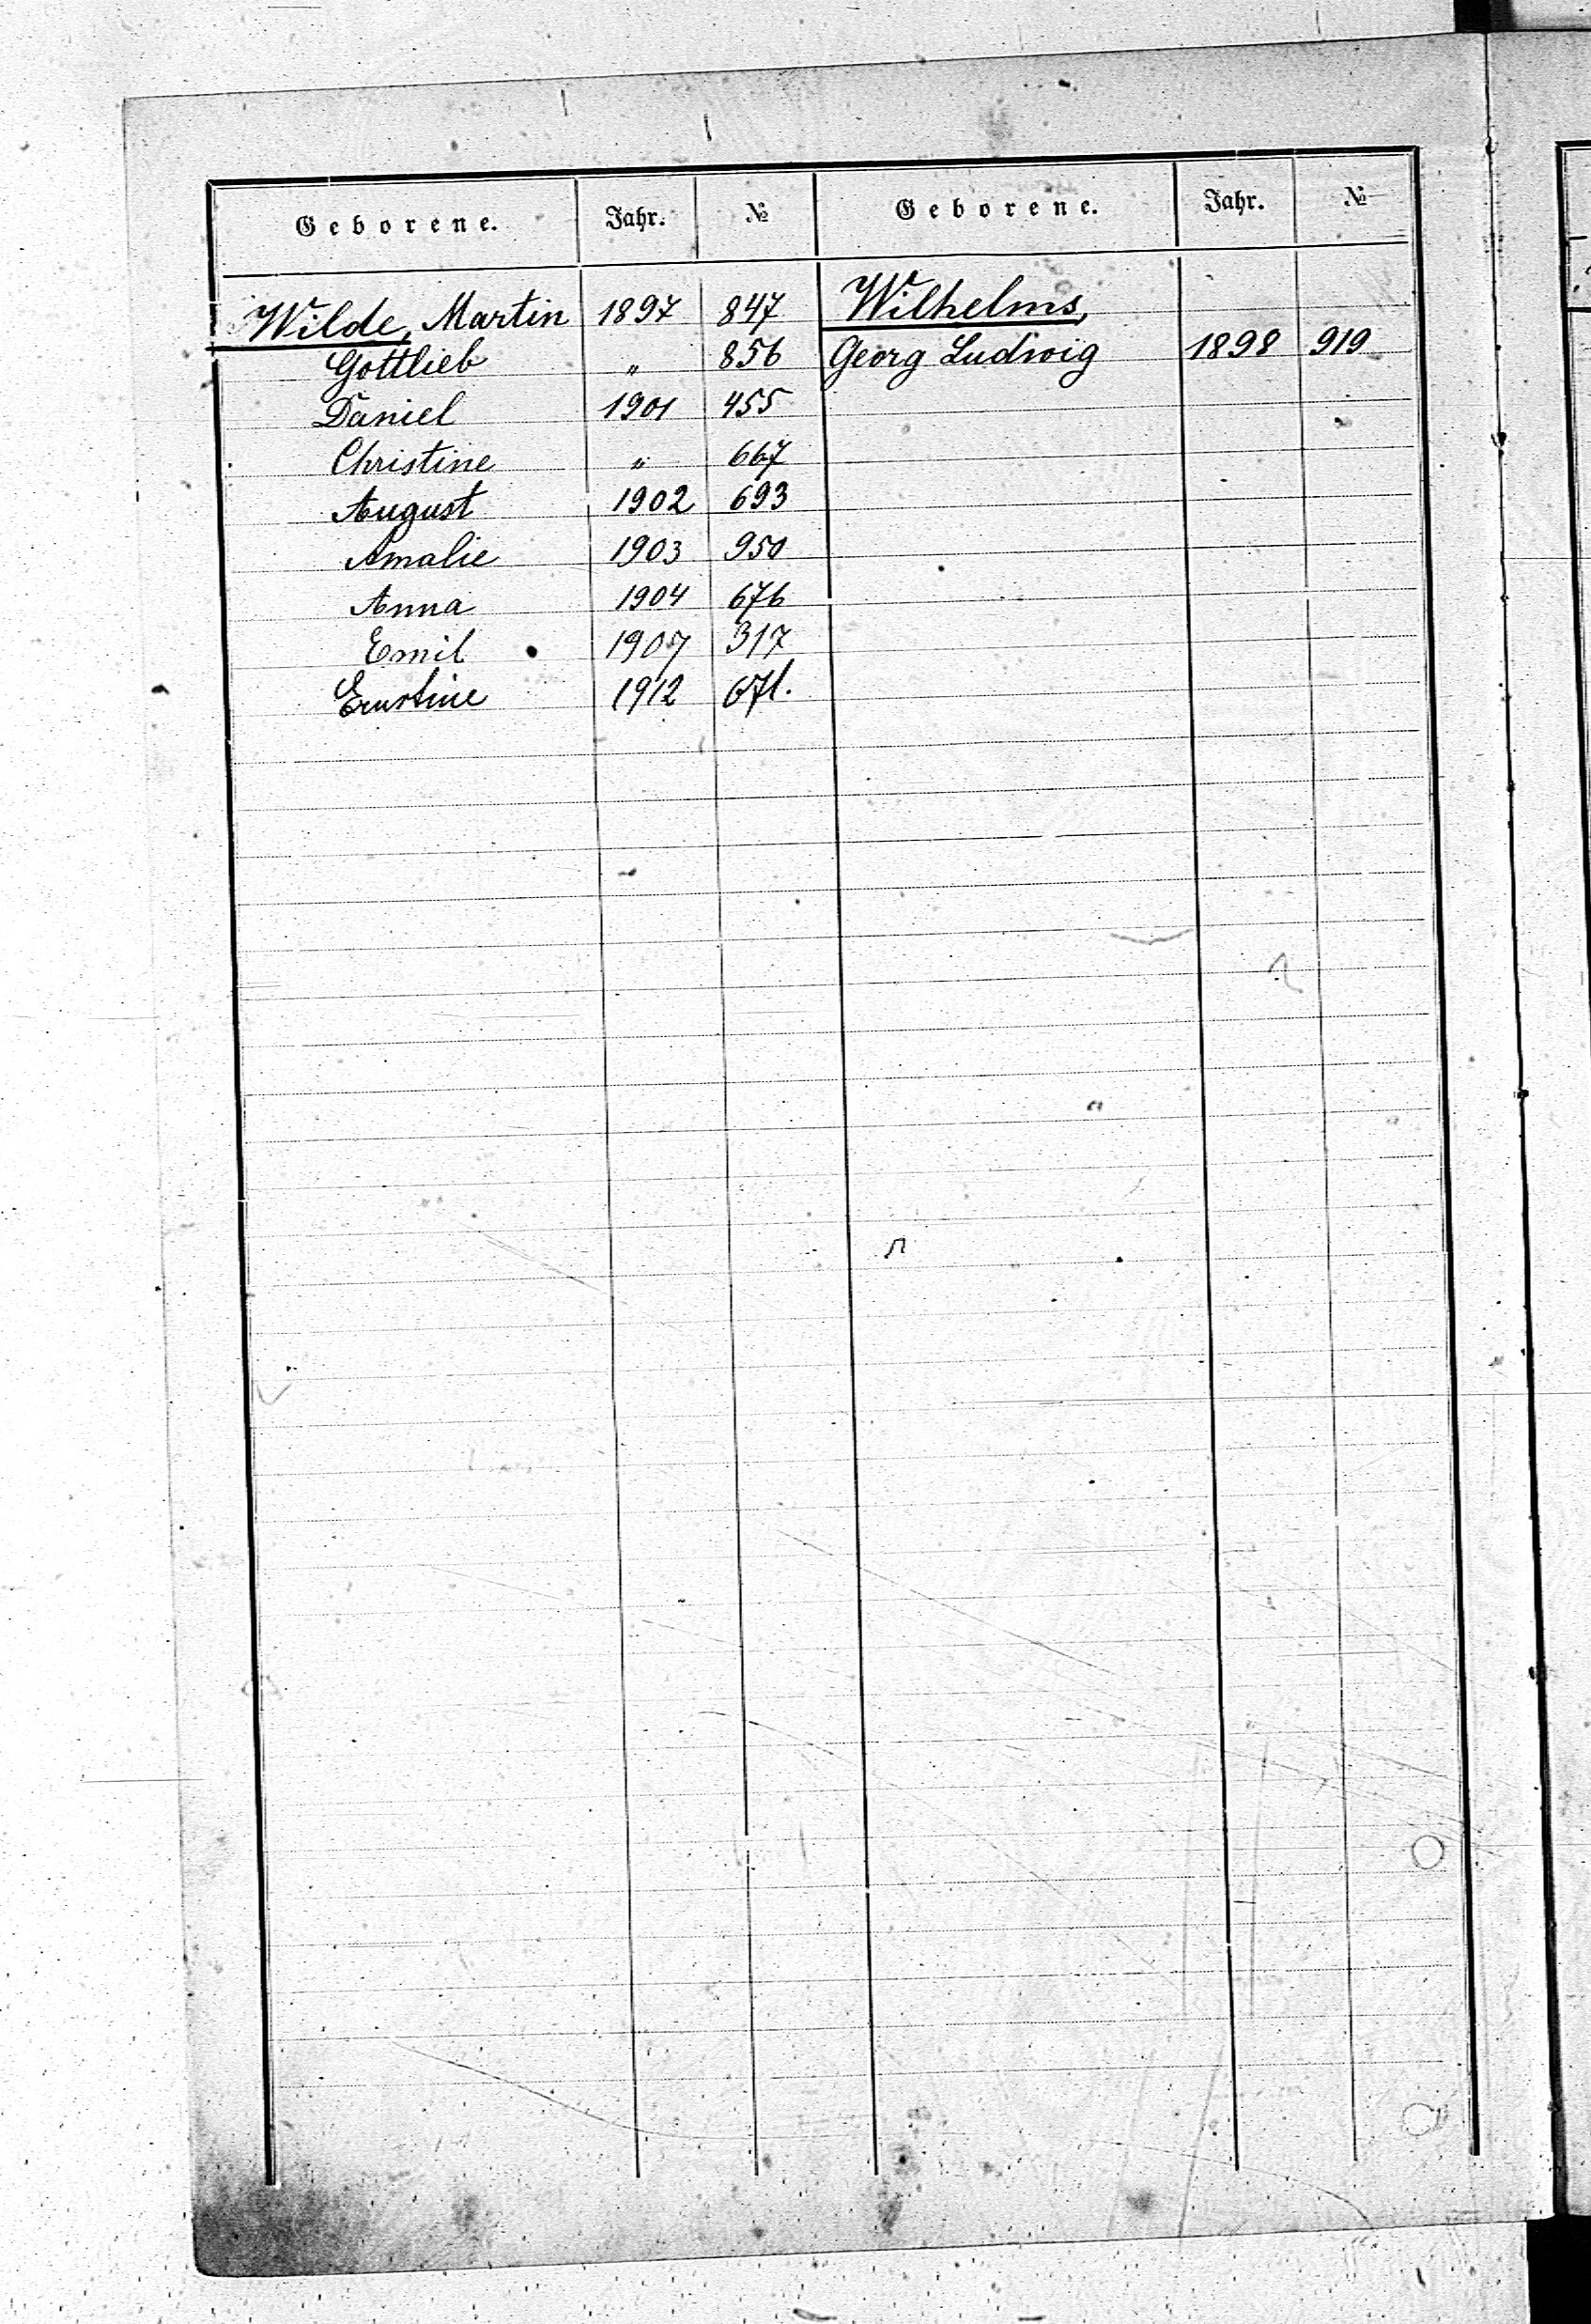 Geborene. Jahr. № Geborene. Jahr. №
Wilde, Martin 1897 847
Gottlieb " 856
Daniel 1901 455
Christine " 667
August 1902 693
Amalie 1903 950
Anna 1904 676
Emil 1907 317
Ernstine 1912 671.
Wilhelms,
Georg Ludwig 1898 919